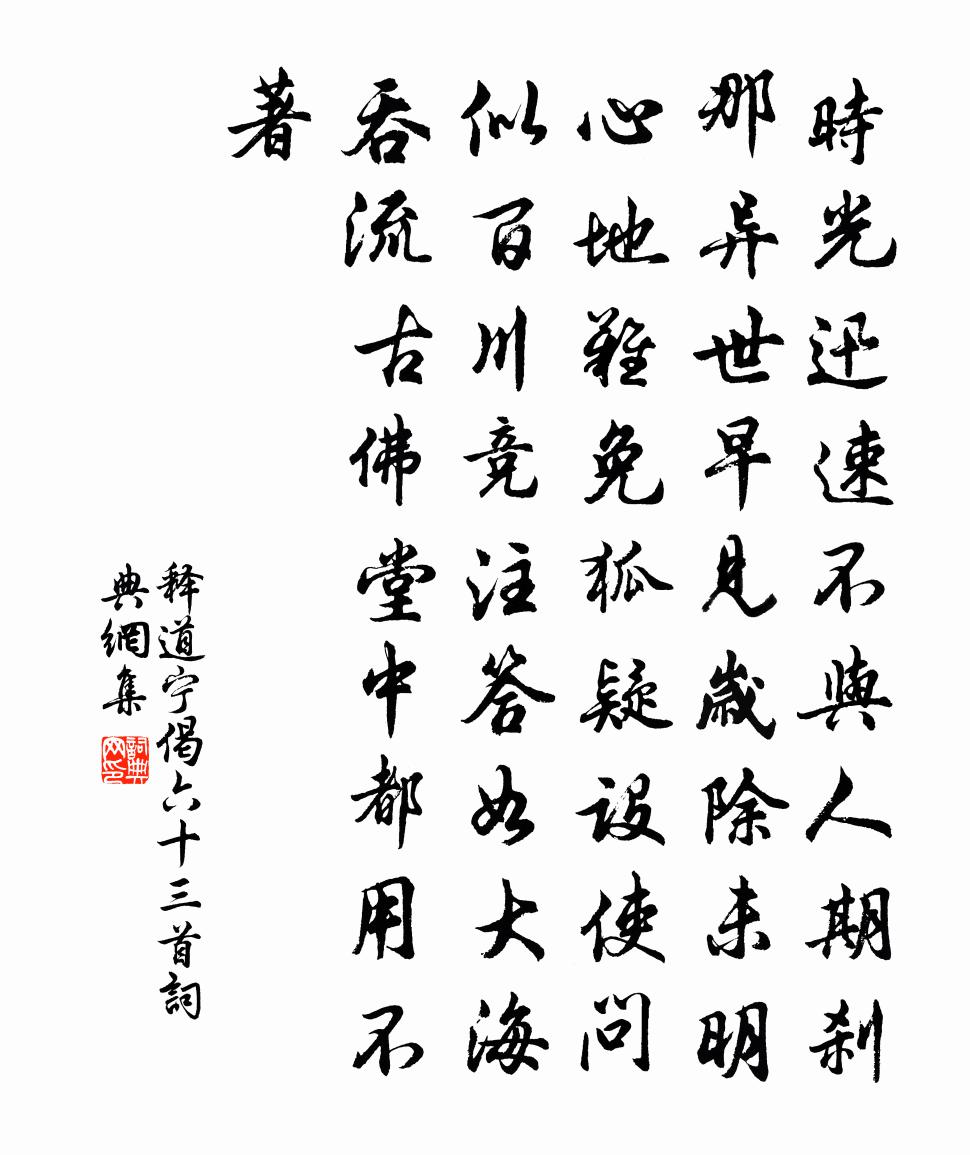 時光迅速不與人期刹
那异世早見歲除未明
心地難免狐疑設使問
似百川竞注答如大海
吞流古佛堂中都用不
著
释道宁偈六十三首詞
典網集
詞典网印